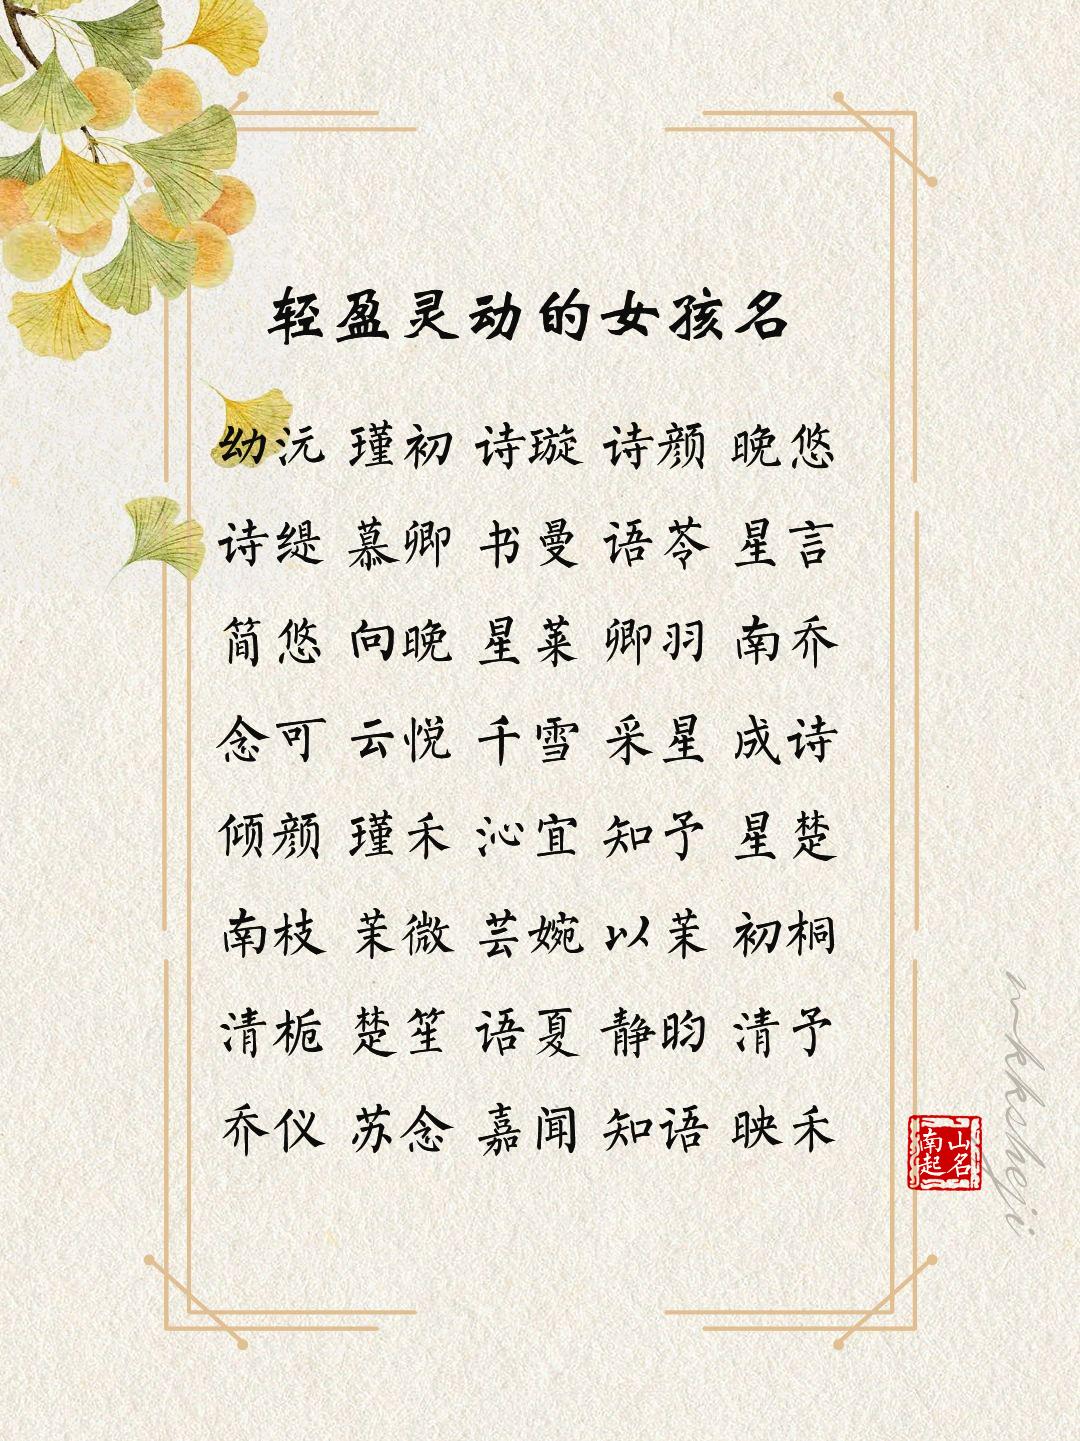 轻盈灵动的女孩名
幼沅 瑾初 诗璇 诗颜 晚悠
诗缇 慕卿 书曼 语苓 星言
简悠 向晚 星莱 卿羽 南乔
念可 云悦 千雪 采星 成诗
倾颜 瑾禾 沁宜 知予 星楚
南枝 茉微 芸婉 以茉 初桐
清栀 楚笙 语夏 静昀 清予
乔仪 苏念 嘉闻 知语 映禾
南山
起名
mkksheji